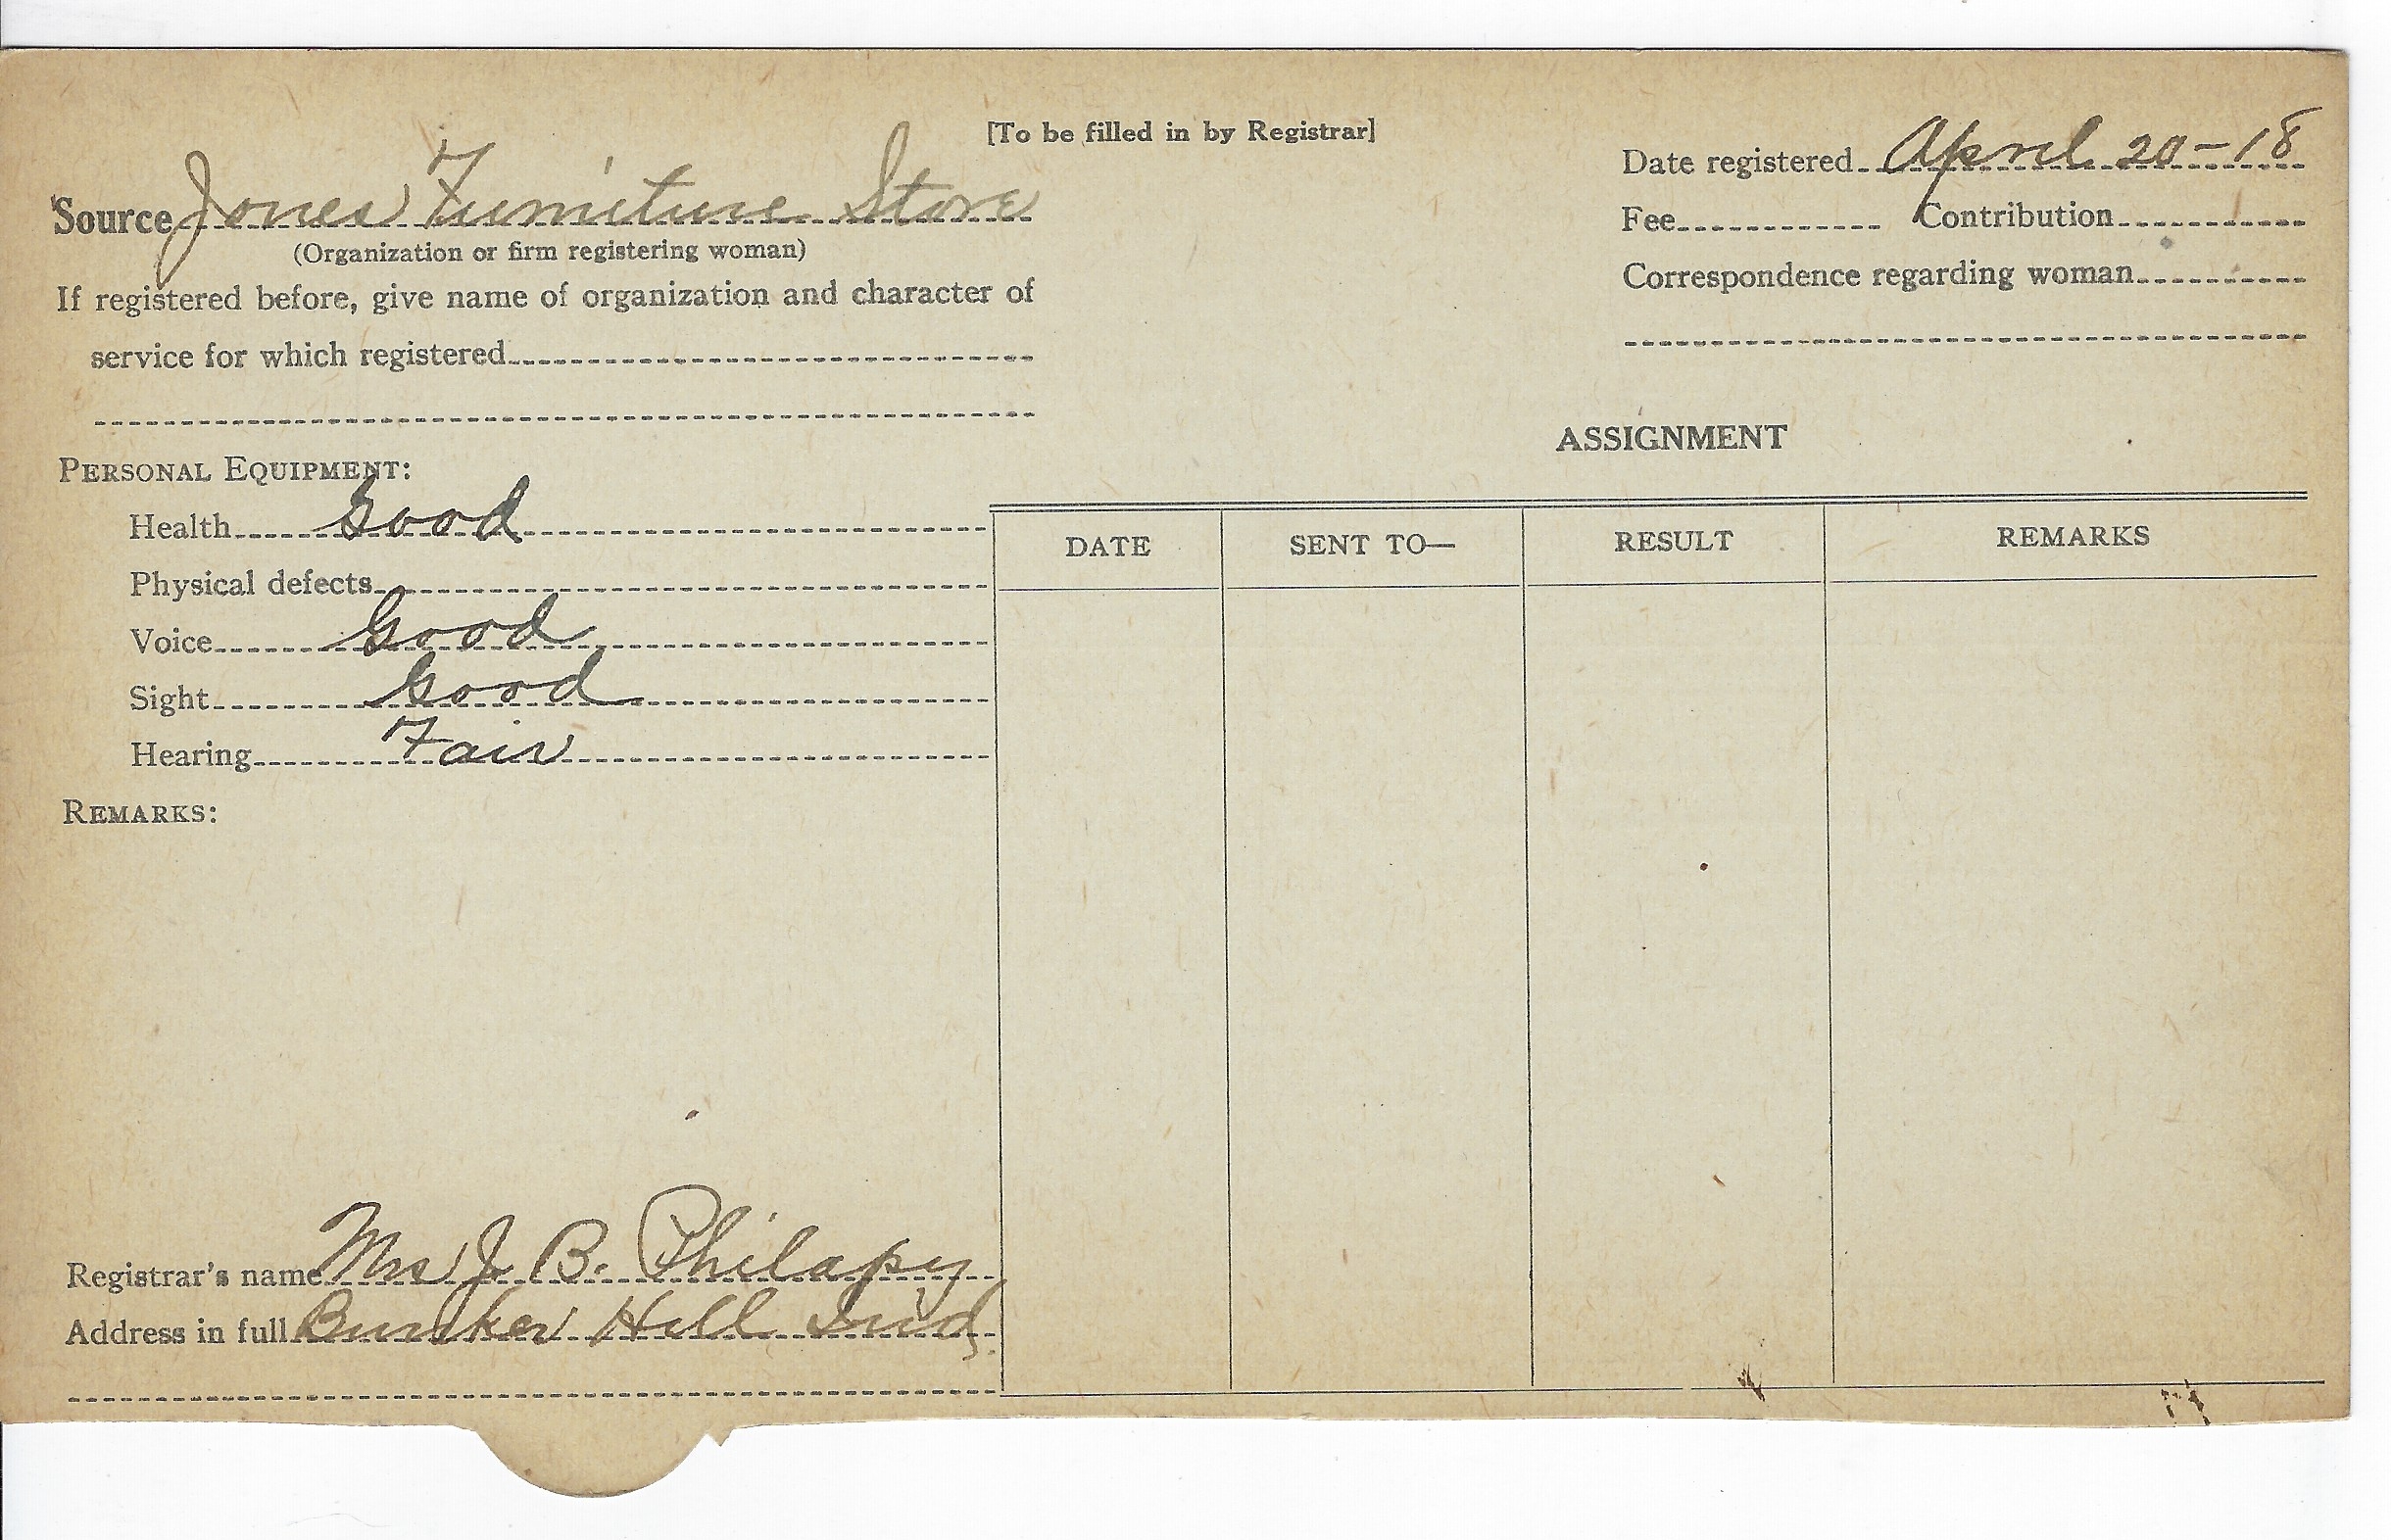 [To be filled in by Registrar]
Source Jones Furniture Store
(Organization or firm registering woman)
If registered before, give name of organization and character of
service for which registered
Date registered April 20-18
Fee Contribution
Correspondence regarding woman
PERSONAL EQUIPMENT:
Health Good
Physical defects
Voice Good
Sight Good
Hearing Fair
REMARKS:
Registrar's name Mrs J. B. Philapy
Address in full Bunker Hill Ind.
ASSIGNMENT
DATE SENT TO— RESULT REMARKS